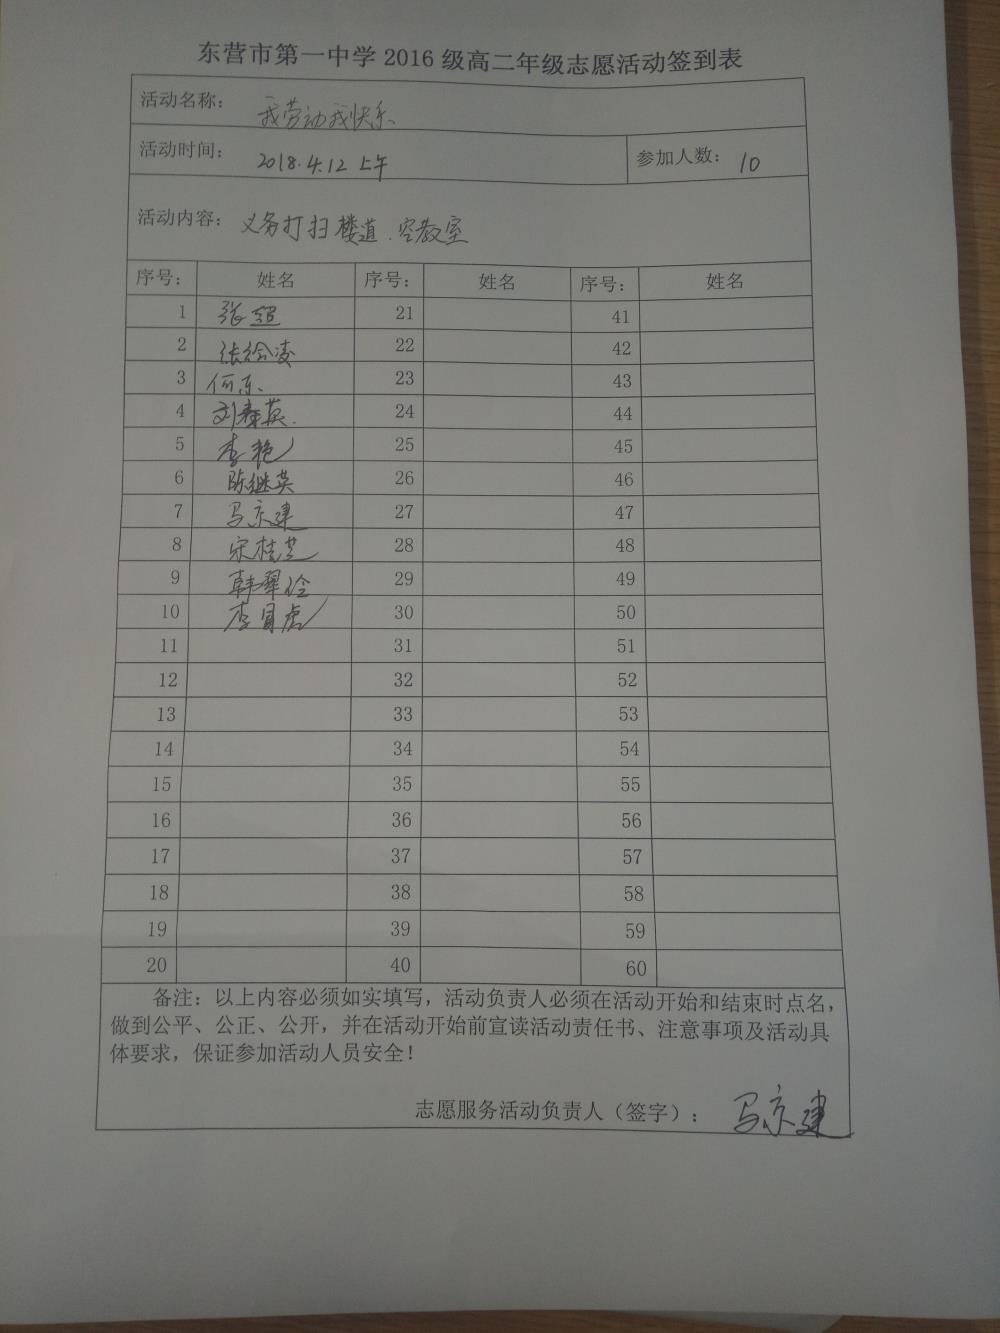 东营市第一中学2016级高二年级志愿活动签到表
活动名称： 我劳动我快乐
活动时间： 2018.4.12 上午 参加人数： 10
活动内容： 义务打扫楼道.空教室
序号： 姓名 序号： 姓名 序号： 姓名
1 张超 21 41
2 张绘凌 22 42
3 何东 23 43
4 刘春英 24 44
5 李艳 25 45
6 陈继英 26 46
7 马京建 27 47
8 宋桂芝 28 48
9 韩翠玲 29 49
10 李冒虎 30 50
11 31 51
12 32 52
13 33 53
14 34 54
15 35 55
16 36 56
17 37 57
18 38 58
19 39 59
20 40 60
备注：以上内容必须如实填写，活动负责人必须在活动开始和结束时点名，
做到公平、公正、公开，并在活动开始前宣读活动责任书、注意事项及活动具
体要求，保证参加活动人员安全！
志愿服务活动负责人（签字）： 马京建